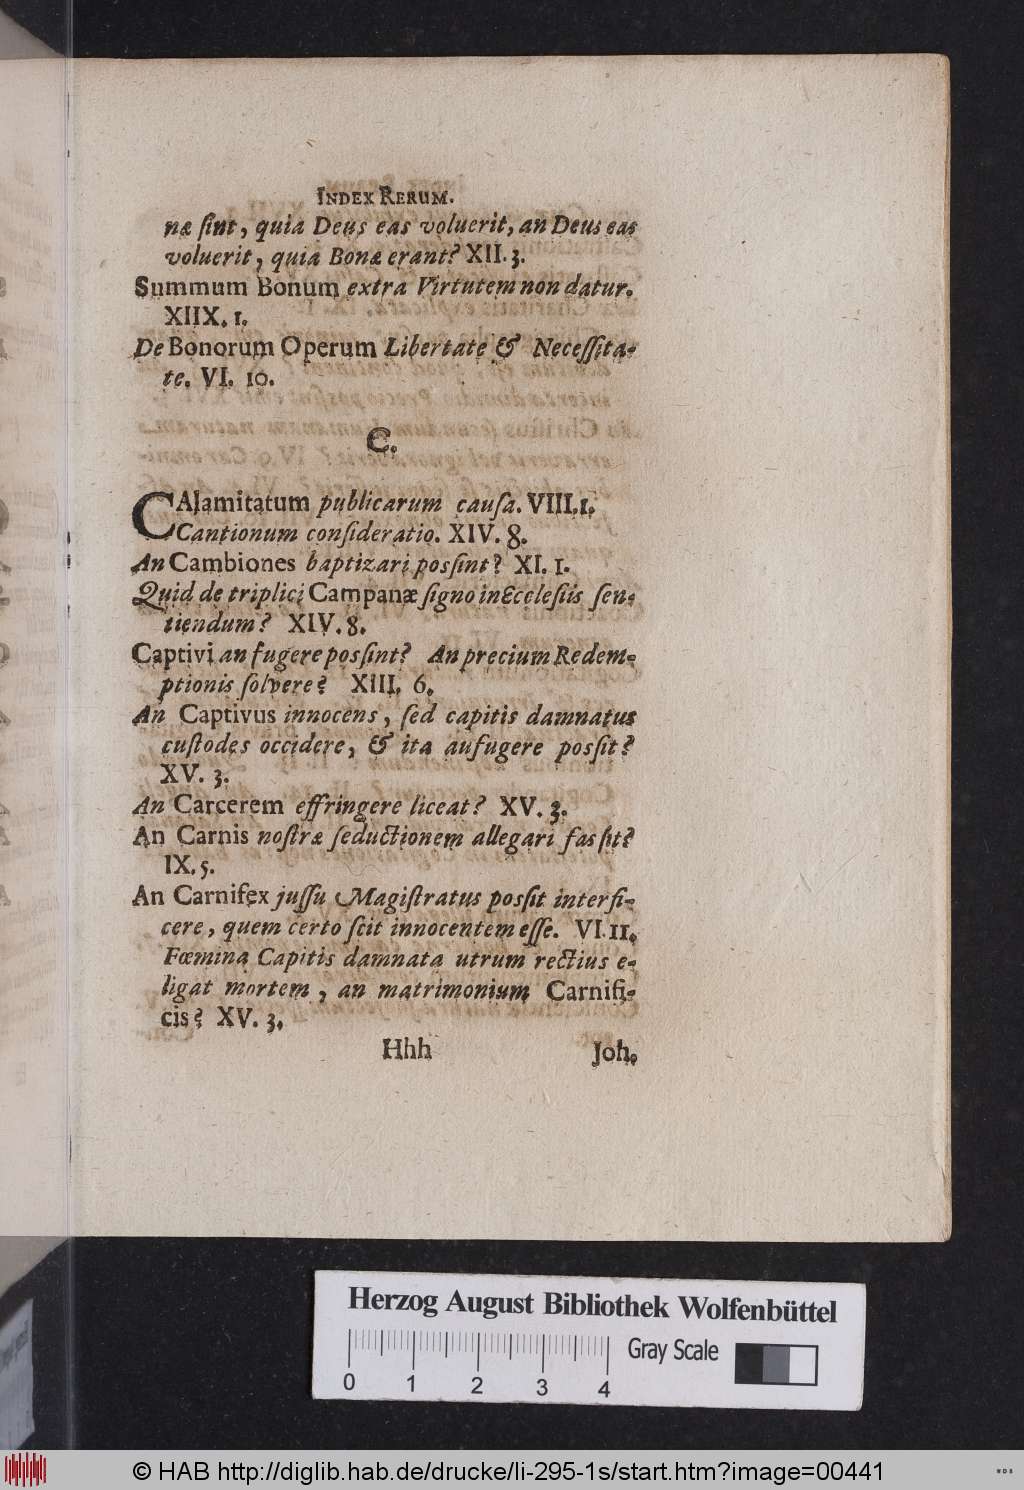 INDEX RERUM.
næ ſint, quia Deus eas voluerit, an Deus eas
voluerit, quia Bonæ erant? XII. 3.
Summum Bonum extra Virtutem non datur.
XIIX. 1.
De Bonorum Operum Libertate & Neceſſita-
te. VI. 10.
C.
CAlamitatum publicarum cauſa. VIII. 1.
Cantionum conſideratio. XIV. 8.
An Cambiones baptizari poſsint? XI. 1.
Quid de triplici Campanæ ſigno in Eccleſiis ſen-
tiendum? XIV. 8.
Captivi an fugere poſsint? An precium Redem-
ptionis ſolvere? XIII. 6.
An Captivus innocens, ſed capitis damnatus
cuſtodes occidere, & ita aufugere poſsit?
XV. 3.
An Carcerem effringere liceat? XV. 3.
An Carnis noſtræ ſeductionem allegari fas ſit?
IX. 5.
An Carnifex juſſu Magiſtratus poſsit interfi-
cere, quem certo ſcit innocentem eſſe. VI. 11.
Fœmina Capitis damnata utrum rectius e-
ligat mortem, an matrimonium Carnifi-
cis? XV. 3.
Hhh Joh.
Herzog August Bibliothek Wolfenbüttel
Gray Scale
0 1 2 3 4
© HAB http://diglib.hab.de/drucke/li-295-1s/start.htm?image=00441